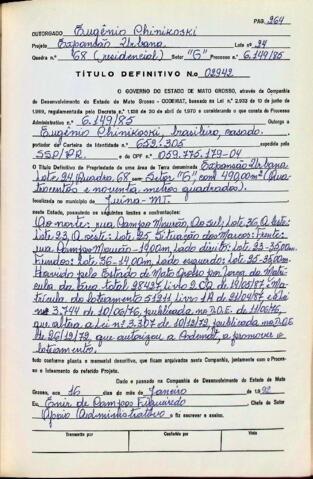 PAG. 264
OUTORGADO Eugênio Chinikoski
Projeto Expansão Urbana Lote nº 24
Quadra nº 68 (residencial) Setor "G" Processo nº 6.149/85
TÍTULO DEFINITIVO No 02942
O GOVERNO DO ESTADO DE MATO GROSSO, através da Companhia
de Desenvolvimento do Estado de Mato Grosso - CODEMAT, baseado na Lei n.º 2.933 de 10 de junho de
1969, regulamentada pelo Decreto n.º 1.138 de 30 de abril de 1970 e considerando o que consta do Processo
Administrativo n.º 6.149/85 Outorga a
Eugênio Chinikoski, brasileiro, casado.
portador da Carteira de Identidade n.º 652.305 expedida pela
SSP/PR. e do CPF n.º 059.775.179-04
o Título Definitivo de Propriedade de uma área de Terra denominada Expansão Urbana
Lote 24, Quadra 68 Setor "G" com 490,00m² (Qua-
trocentos e noventa metros quadrados).
localizada no município de Juina-MT.
neste Estado, possuindo os seguintes limites e confrontações:
Ao norte: rua Campo Mourão, Ao sul; Lote 36, A leste:
Lote 23, A oeste: Lote 25, Situação dos Marcos: Frente:
rua Campo Mourão-14,00m, Lado direito: Lote 23-35,00m.
Fundos: Lote 36-14,00m, Lado esquerdo: Lote 25-35,00m.
Havido pelo Estado de Mato Grosso por força da Matrí-
cula da área total 28437 Livro 2.CQ de 19/03/87 e Ma-
trícula do loteamento 51311 Livro 1A de 21/04/87 e Lei
nº 3.744 de 10/06/76, publicada no D.O.E. de 11/06/76,
que altera a Lei nº 3.307 de 10/12/72, publicada no D.O.E
de 26/12/72, que autorizou a Codemat, a promover o
loteamento.
tudo conforme planta e memorial descritivo, que ficam arquivados nesta Companhia, juntamente com o Proces-
so e loteamento do referido Projeto.
Dado e passado na Companhia de Desenvolvimento do Estado de Mato
Grosso, aos 16 dias do mês de Janeiro
Eu, Enir de Campos Figueiredo Chefe do Setor
Apoio Administrativo o fiz escrever e assino.
Transcrito por Conferido por Visto